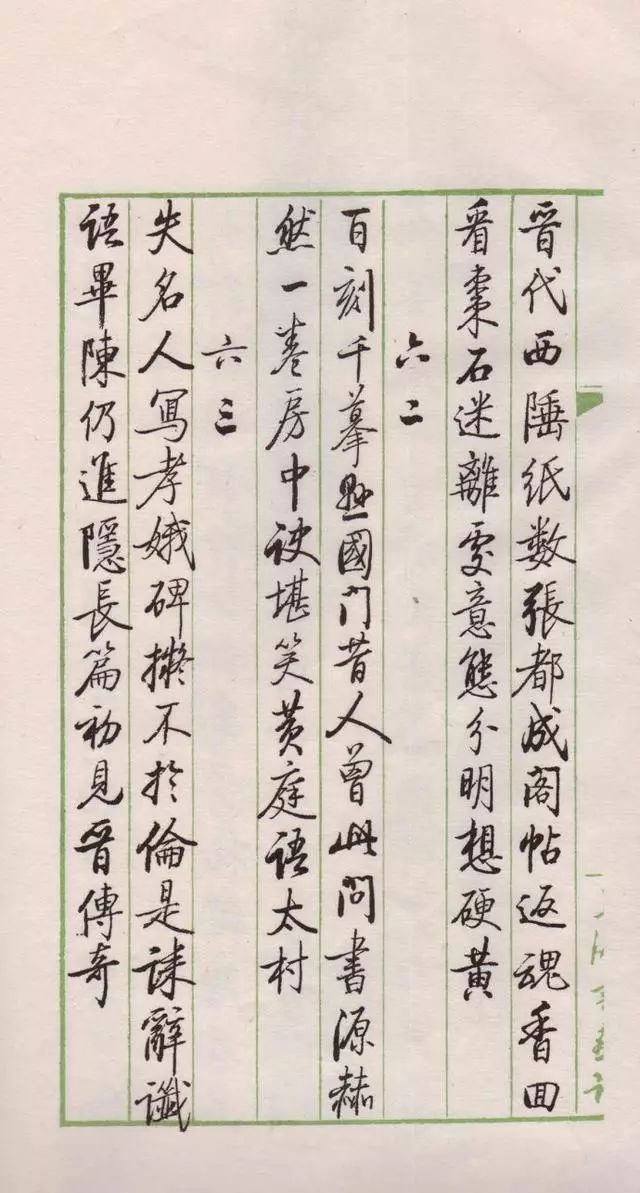 晋代西陲纸数張都成阁帖返魂香回
看棗石迷離處意態分明想硬黄
六二
百刻千摹悬國门昔人曾此问書源赫
然一卷房中诀堪笑黄庭语太村
六三
失名人写孝娥碑擬不於倫是誄辭讖
语畢陳仍進隱長篇初見晋傳奇